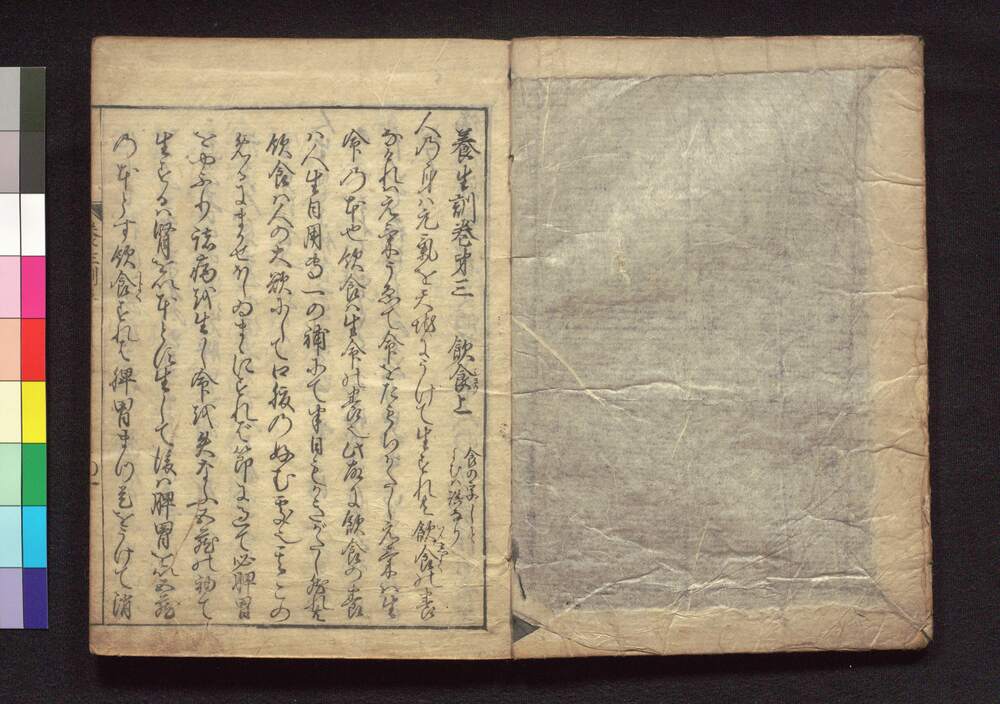 養生訓巻第三　飲食上
人の身ハ元氣を天地にうけて生ずれ共飲食の養
なければ元氣うゑて命をたもちがたし元氣ハ生
命の本也飲食ハ生命の養也此故に飲食の養
ハ人生日用専一の補にて半日もかきがたし然れ共
飲食ハ人の大欲にして口腹の好む処也其この
めるにまかせほしゐまゝにすれば節に過て必脾胃
をやぶり諸病を生じ命を失なふ五臓の初て
生ずるハ腎を以本とす生じて後ハ脾胃を以五臓
の本とす飲食すれば脾胃まづ是をうけて消